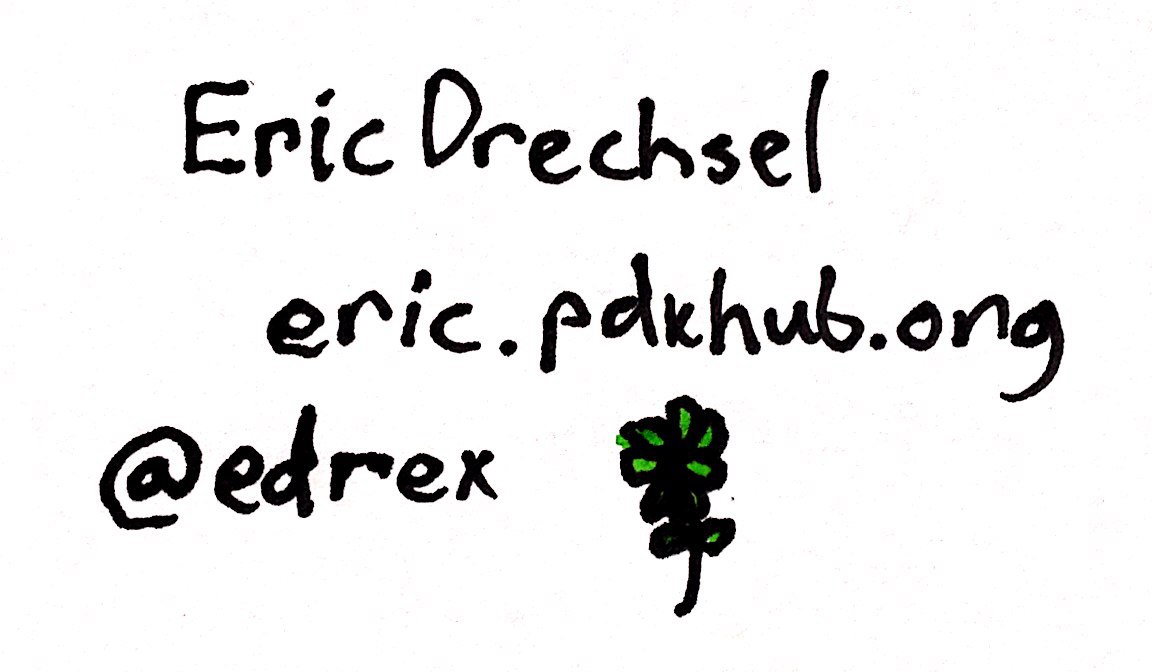 Eric Drechsel
eric.pdxhub.org
@edrex